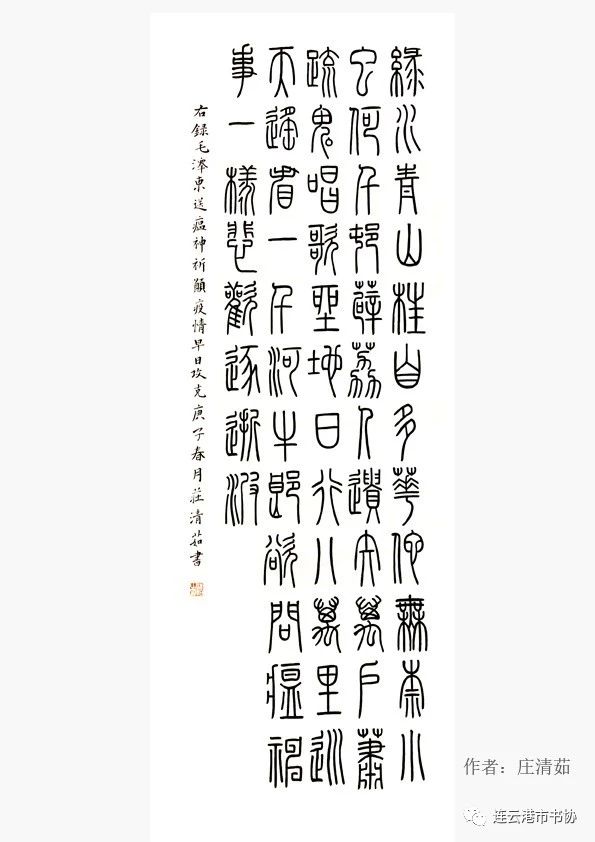 緑水青山枉自多華佗無奈小
虫何千村薜荔人遺矢萬戶蕭
疏鬼唱歌坐地日行八萬里巡
天遙看一千河牛郎欲問瘟神
事一樣悲歡逐逝波
右録毛澤東送瘟神祈願疫情早日攻克庚子春月莊清茹書
作者：庄清茹
连云港市书协